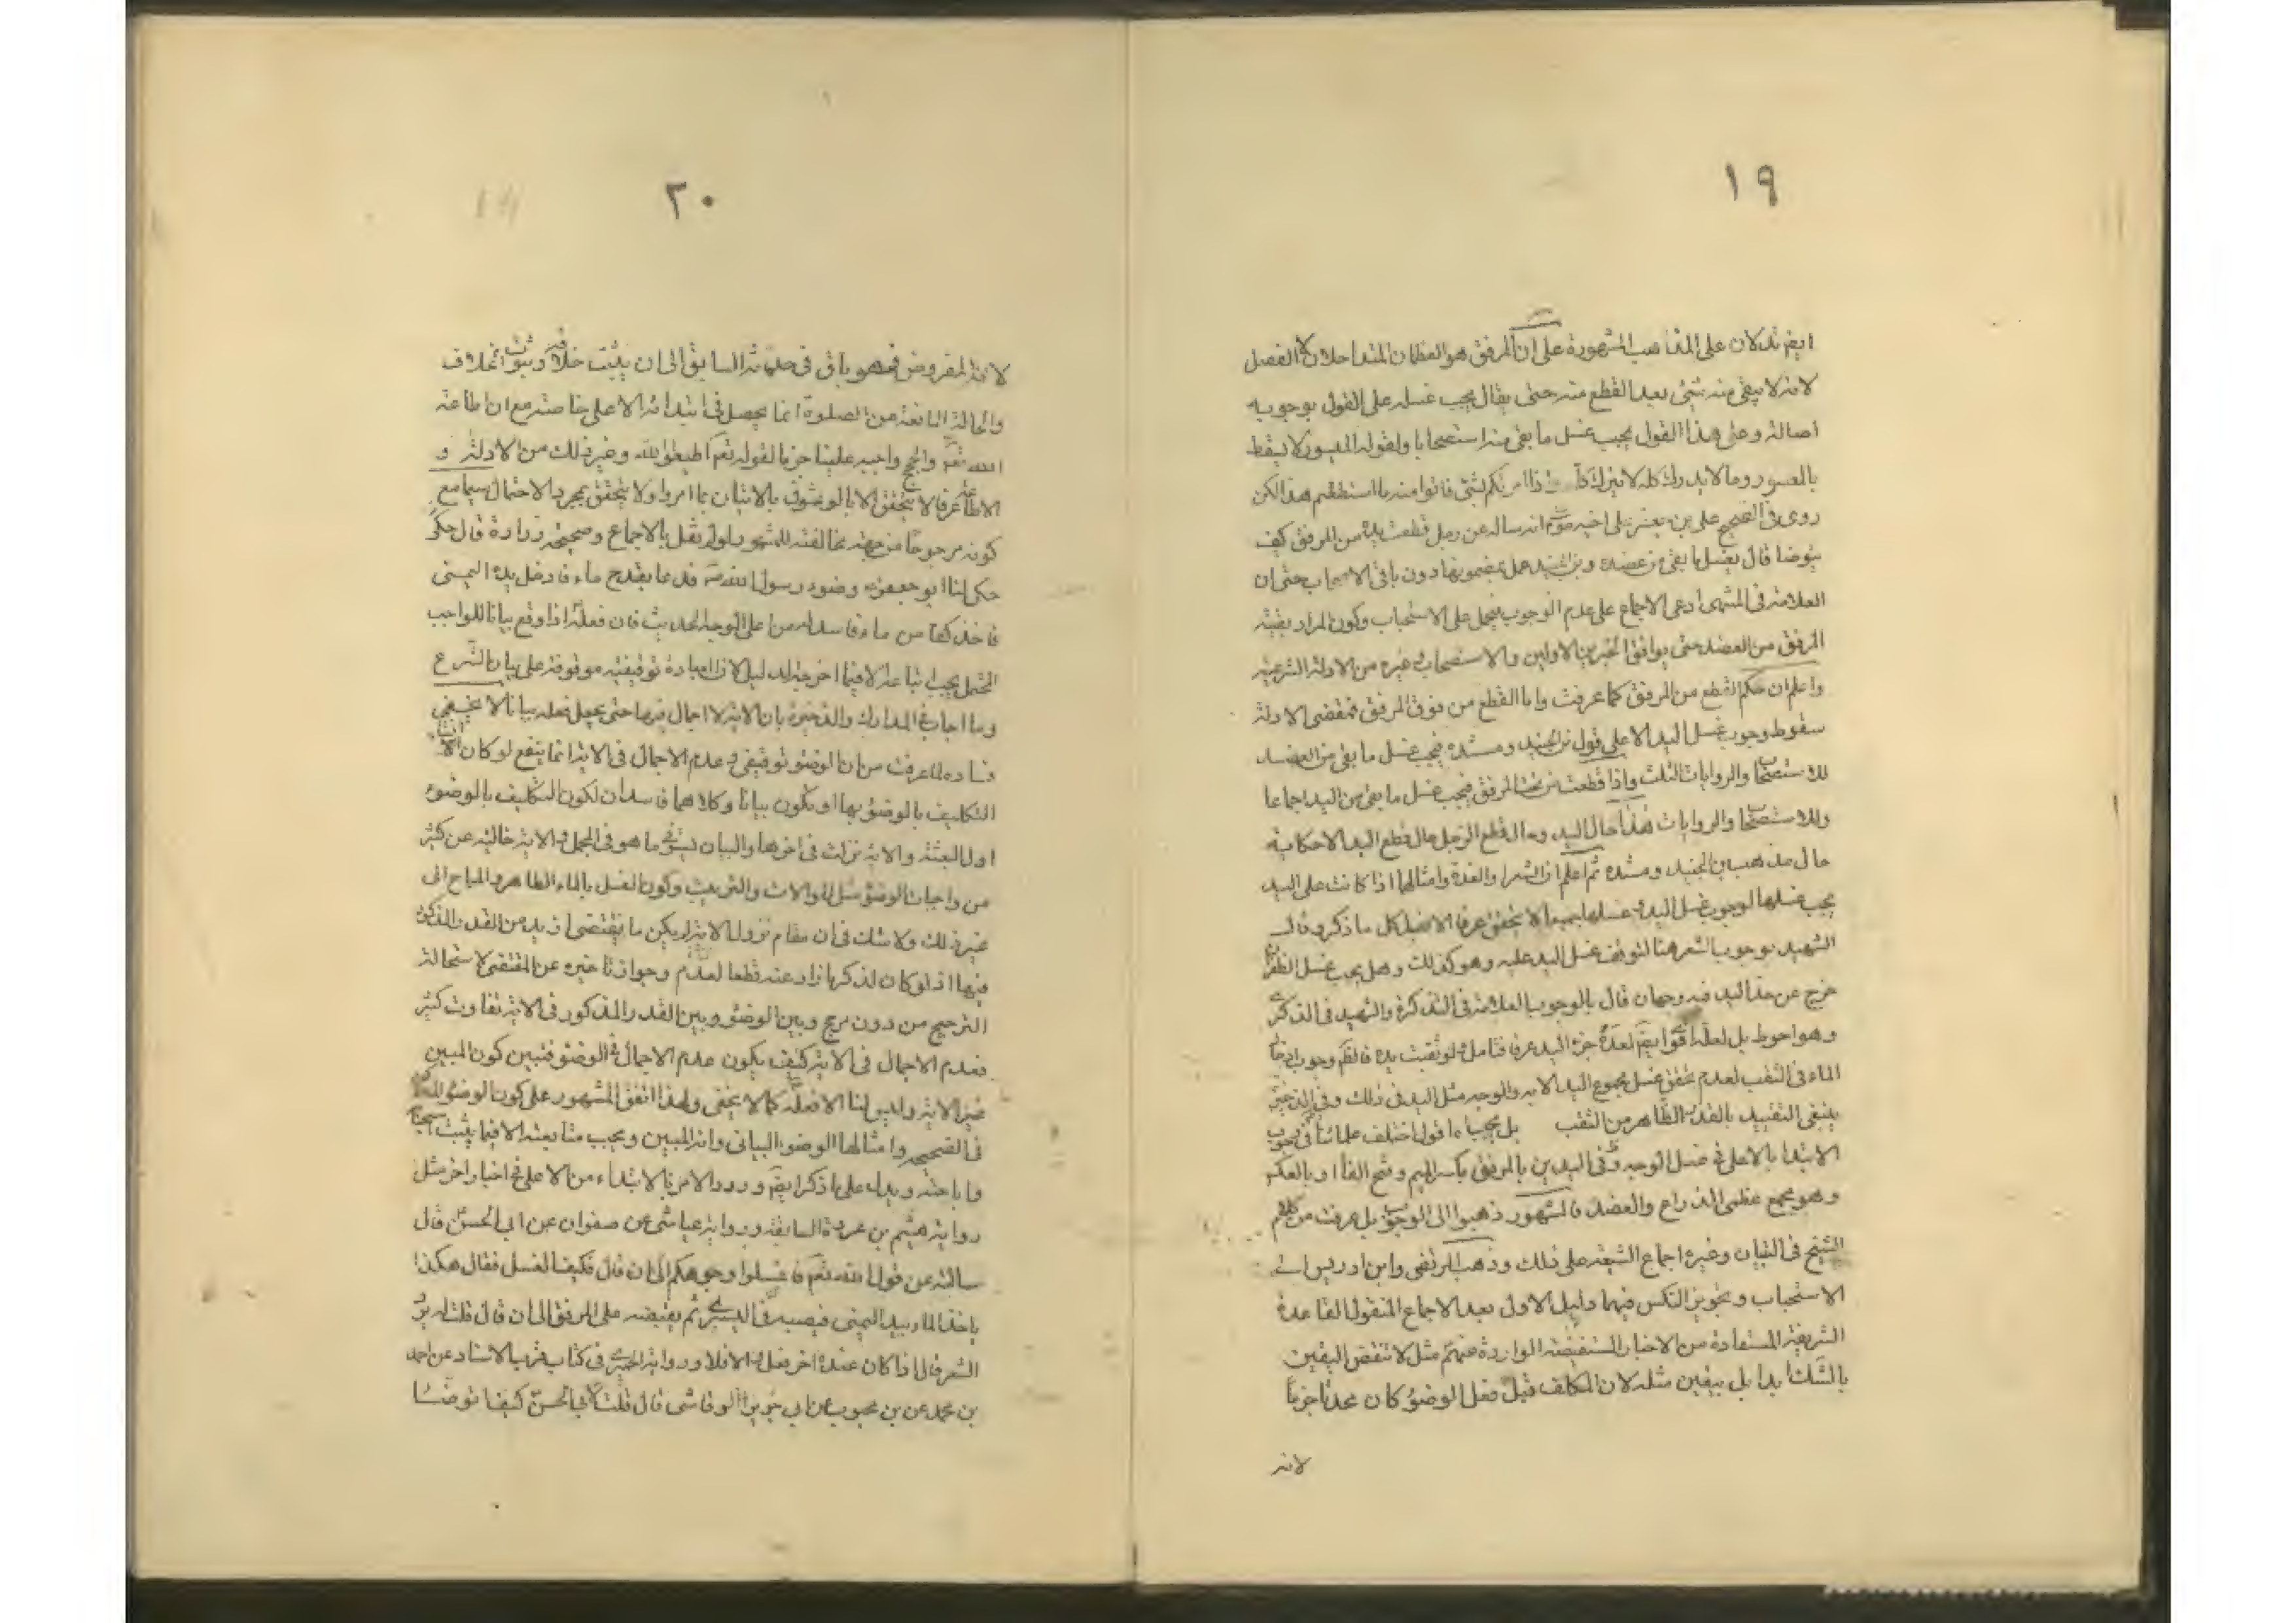 ١٩
ايضم تدلان على المذاهب المشهورة على ان المرفق هو العظمان المتداخلان لا المفصل
لانه لا يبقى منه شئ بعد القطع منه حتى يقال يجب غسله على القول بوجوبه
اصالة وعلى هذا القول يجب غسل ما بقى منه استصحابا ولقوله الميسور لا يسقط
بالمعسور وما لا يدرك كله لا يترك كله اذا امرتكم بشئ فاتوا منه ما استطعتم هذا لكن
روى فى الصحيح على بن جعفر على اخيه موسى انه ساله عن رجل قطعت يده من المرفق كيف
يتوضا قال يغسل ما بقى من عضده و بن الجنيد عمل بمضمونها دون باقى الاصحاب حتى ان
العلامة فى المنتهى ادعى الاجماع على عدم الوجوب فيحمل على الاستحباب وكون المراد بقية
المرفق من العضد حتى يوافق الخبرين الاولين والاستصحاب وغيره من الادلة الشرعية
واعلم ان حكم القطع من المرفق كما عرفت واما القطع من فوق المرفق فمقتضى الادلة
سقوط وجوب غسل اليد الا على قول بن الجنيد ومسنده فيجب غسل ما بقى من العضد
للاستصحا والروايات الثلث واذا قطعت من تحت المرفق فيجب غسل ما بقى من اليد اجماعا
وللاستصحا والروايات هذا حال اليد وحال قطع الرجل حال قطع اليد الا حكاية
حال مذهب بن الجنيد ومسنده ثم اعلم ان الشعر والغدة وامثالها اذا كانت على اليد
يجب غسلها لوجوب غسل اليد وغسلها جميعا لا يتحقق عرفا الا بغسل كل ما ذكر وقال
الشهيد بوجوب الشعر هنا لتوقف غسل اليد عليه وهو كذلك وهل يجب غسل الظفر ان
خرج عن حد اليد فيه وجهان قال بالوجوب العلامة فى التذكرة والشهيد فى الذكرى
وهو احوط بل لعله اقوا ايضم لعده جزء اليد عرفا فتامل ولو ثقبت يده فالظم وجوب ادخال
الماء فى الثقب لعدم تحقق غسل مجموع اليد الا به والوجه مثل اليد فى ذلك وفى الذخيرة
ينبغى التقييد بالقدر الظاهر من الثقب بل يجب اقول اختلف علمائنا فى وجوب
الابتدا بالاعلى فى غسل الوجه وفى اليدين بالمرفق بكسر الميم وفتح الفا او بالعكس
وهو مجمع عظمى الذراع والعضد فالمشهور ذهبوا الى الوجوب بل عرفت من كلام
الشيخ فى التبيان وغيره اجماع الشيعة على ذلك وذهب المرتضى وابن ادريس الى
الاستحباب وتجويز النكس فيهما دليل الاول بعد الاجماع المنقول القاعدة
الشريفة المستفادة من الاخبار المستفيضة الواردة عنهم مثل لا تنقض اليقين
بالشك ابدا بل بيقين مثله لان المكلف قبل فعل الوضوء كان محدثا جزما
لانه
٢٠
لانه المفروض فهو باق فى حدثه السابق الى ان يثبت خلافه و ثبوت الخلاف
والحالة المانعة من الصلوة انما يحصل فى ابتدائه الاعلى خاصة مع ان اطاعة
الله تعم والحج واجبه علينا جزما لقوله تعم اطيعوا الله وغير ذلك من الادلة و
الاطاعة عرفا لا يتحقق الا بالوثوق بالاتيان بما امروا ولا يتحقق بمجرد الاحتمال سيما مع
كونه مرجوحا من جهة مخالفته للمشهور لو لم نقل بالاجماع وصحيحة زرارة قال حكى
حكى لنا ابو جعفر وضوء رسول الله ص فدعا بقدح ماء فادخل يده اليمنى
فاخذ كفا من ماء فاسدله من اعلى الوجه الحديث فان فعله اذا وقع بيانا للواجب
المجمل يجب اتباعه الا فيما اخرجه الدليل لان العبادة توقيفية موقوفة على بيان الشرع
وما اجاب فى المدارك والذخيرة بان الاية لا اجمال فيها حتى يجعل فعله بيانا لا يخفى
فساده لما عرفت من ان الوضوء توقيفى وعدم الاجمال فى الاية انما ينفع لو كان اثبات
التكليف بالوضوء بها او تكون بيانا وكلاهما فاسدان لكون التكليف بالوضوء
اول البعثة والاية نزلت فى اخرها والبيان يستوفى ما هو فى المجمل والاية خالية عن كثير
من واجبات الوضوء مثل الموالات والترتيب وكون الغسل بالماء الطاهر والمباح الى
غير ذلك ولا شك فى ان مقام نزول الاية لم يكن ما يقتضى ازيد من القدر المذكور
فيها اذ لو كان لذكرها زاد عنه قطعا لعدم وجواز تاخيره عن المقتضى لاستحالة
الترجيح من دون مرجح وبين الوضوء وبين القدر المذكور فى الاية تفاوت كثير
فعدم الاجمال فى الاية كيف يكون عدم الاجمال فى الوضوء فتبين كون المبين
غير الاية وليس لنا الا فعله كما لا يخفى ولهذا اتفق المشهور على كون الوضوء المذكور
فى الصحيحة وامثالها الوضوء البيانى وانه المبين ويجب متابعته الا فيما يثبت استحبابا
واباحته ويدل على ما ذكر ايضم ورود الامر بالابتداء من الاعلى فى اخبار اخر مثل
رواية هيثم بن عروة السابقة ورواية عياشى عن صفوان عن ابى الحسن قال
سالته عن قول الله تعم فاغسلوا وجوهكم الى ان قال فكيف الغسل فقال هكذا
ياخذ الماء بيد اليمنى فيصبه فى اليسرى ثم يفيضه على المرفق الى ان قال قلت له يرد
الشعر قال اذا كان عنده اخر فعل والا فلا ورواية الحميرى فى كتاب قرب الاسناد عن احمد
بن محمد عن بن محبوب عن ابى جرير الرقاشى قال قلت لابى الحسن كيف اتوضا